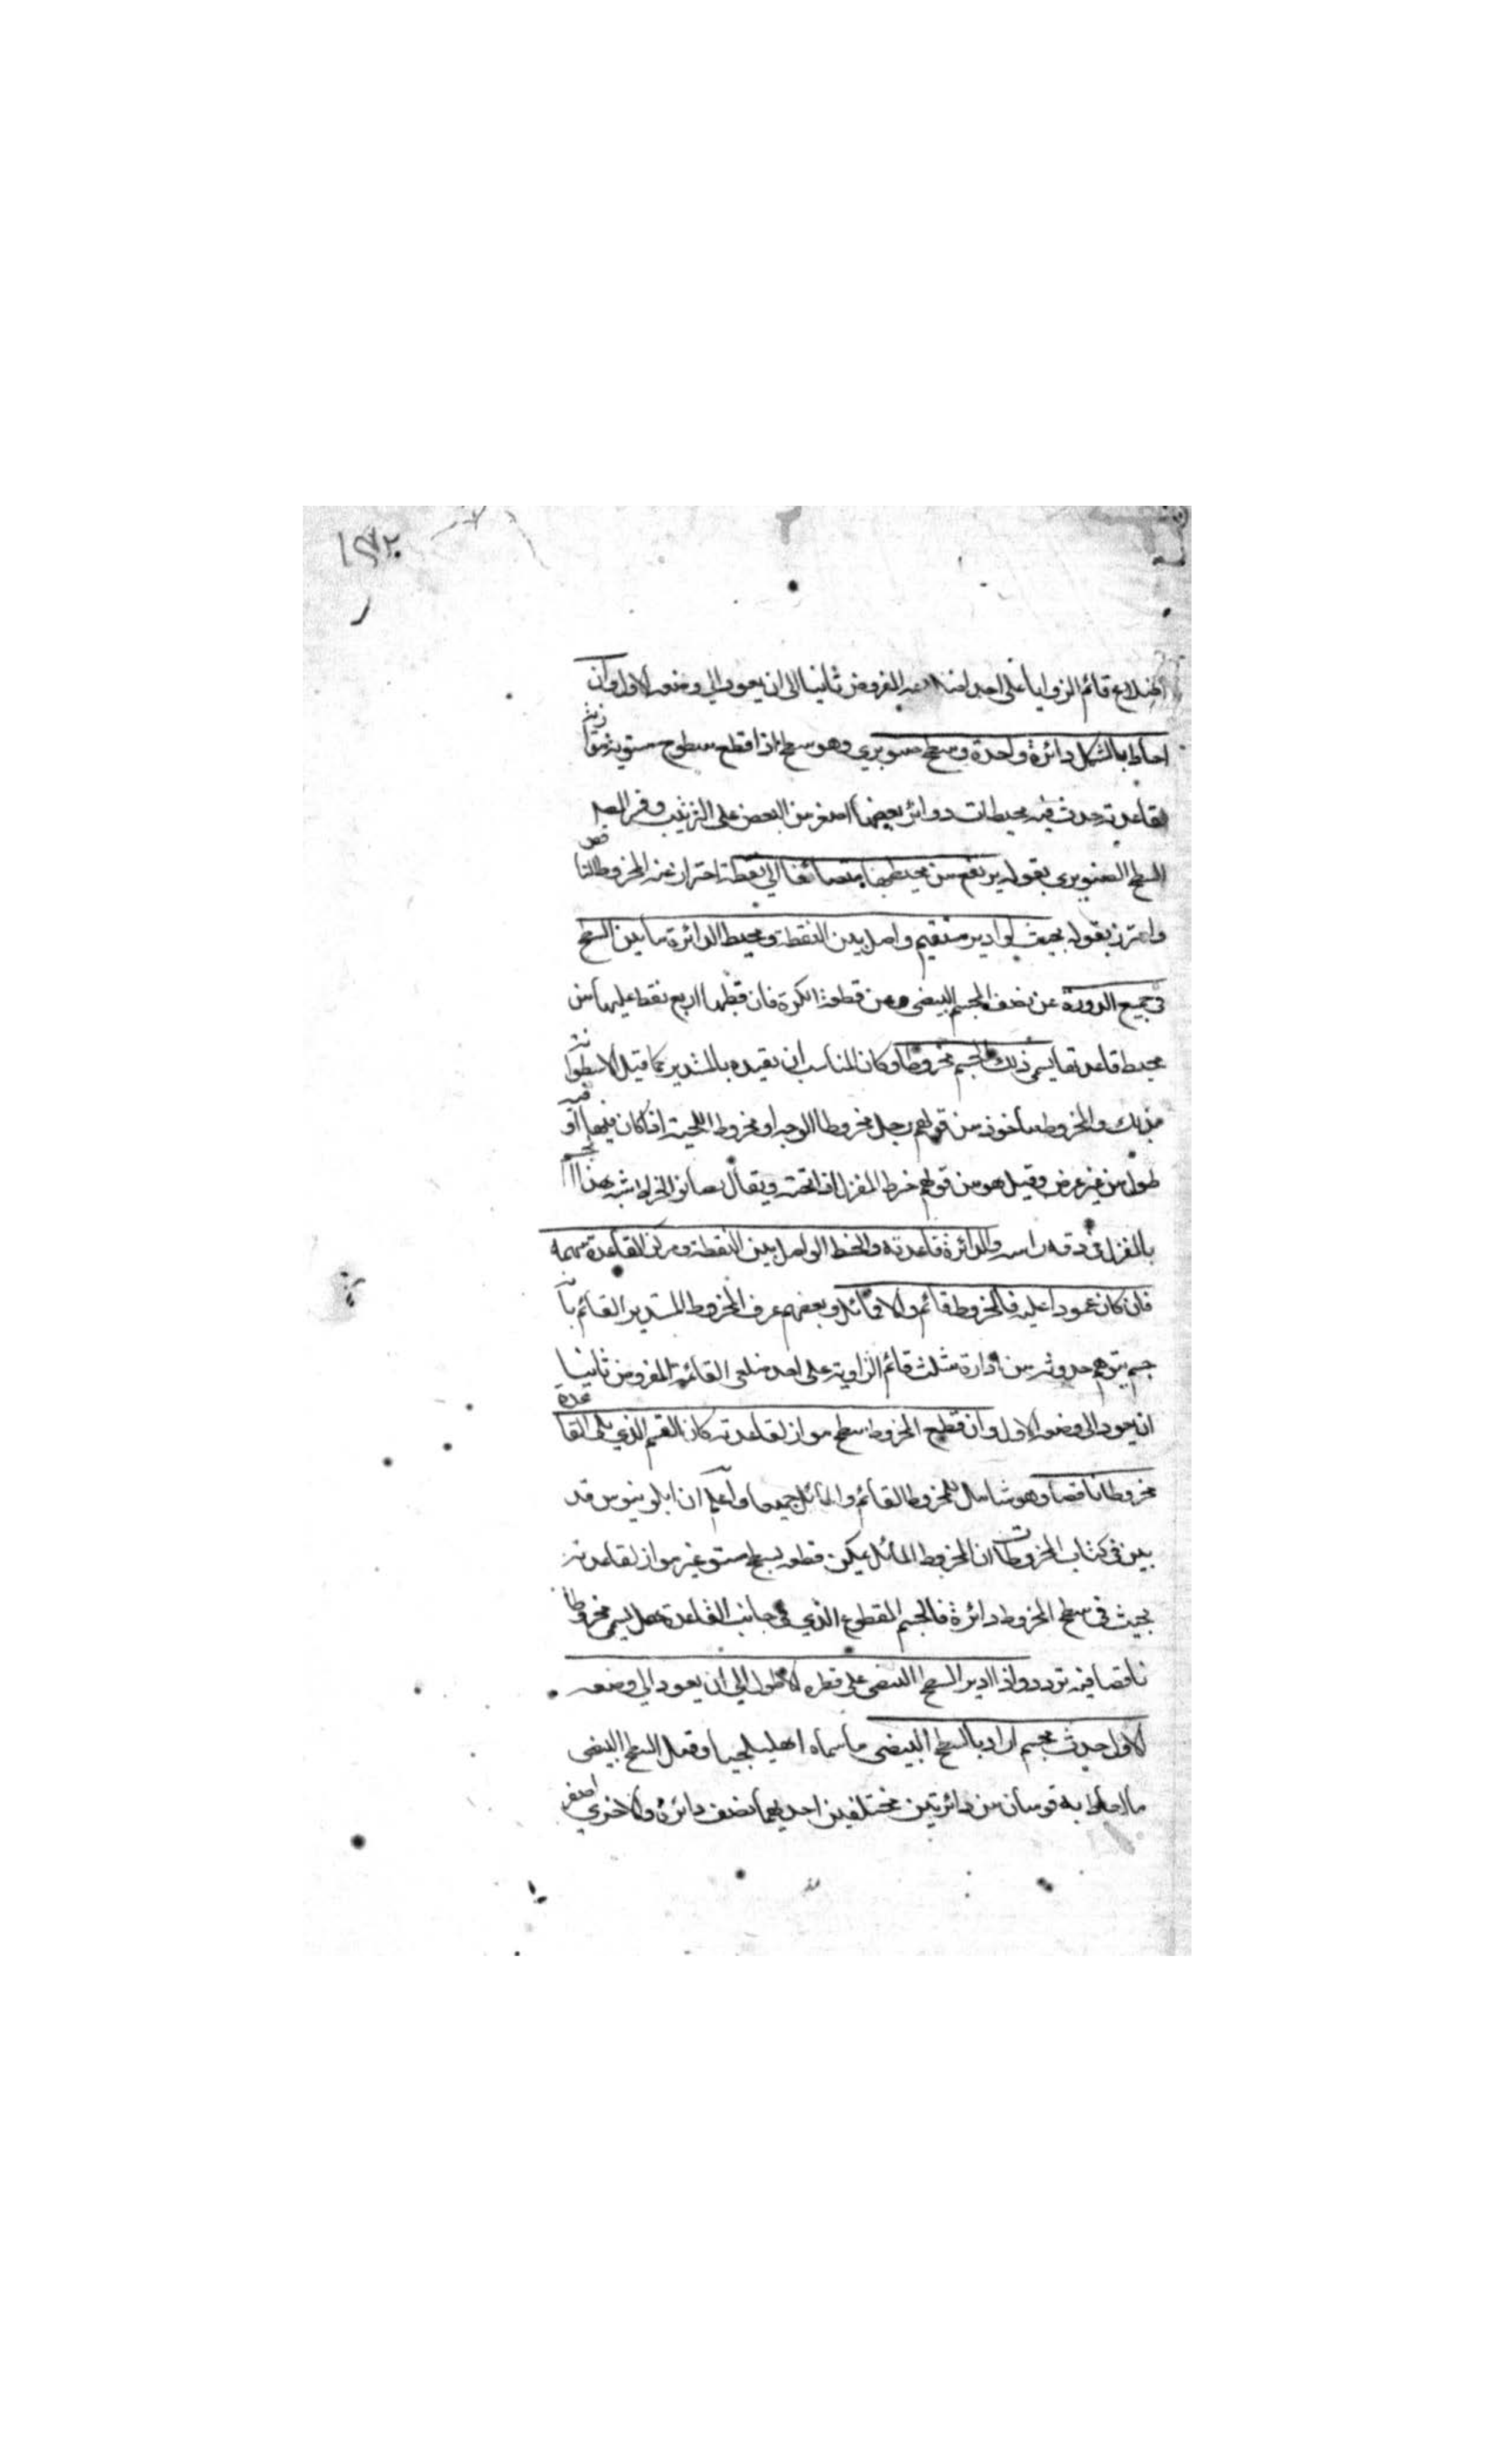 ١٩٧٢
اضلاع قائم الزوايا على احد اضلاعه المفروض ثابتا الى ان يعود الى وضعه الاول وان
احاط بالشكل دائرة واحدة وسطح صنوبري وهو سطح اذا قطع بسطوح مستوية موازية
لقاعدته حدث فيه محيطات دوائر بعضها اصغر من البعض على الترتيب وفسر المص
السطح الصنوبري بقوله يرتفع من محيطها متضائقا الى نقطة احتراز عن المخروط الناقص
واحترز بقوله بحيث لو ادير مستقيم واصل بين النقطة ومحيط الدائرة ماس السطح
في جميع الدورة عن نصف المجسم البيضى وعن قطعة الكرة فان قطبها اربع نقط عليها من
محيط قاعدتها يسمى ذلك المجسم مخروطا وكان المناسب ان يقيده بالمستدير كما قيد الاسطوانة
بذلك والمخروط مأخوذ من قولهم رجل مخروط الوجه او مخروط اللحية اذا كان فيهما او فيه
طول من غير عرض وقيل هو من قولهم خرط المغزل اذا نحته ويقال لصانع الخراط شبه هذا المجسم
بالمغزل في دقة راسه والدائرة قاعدته والخط الواصل بين النقطة ومركز القاعدة سهمه
فان كان عمودا عليه فالمخروط قائم والا فمائل وبعضهم عرف المخروط المستدير القائم بانه
جسم يتوهم حدوثه من ادارة مثلث قائم الزاوية على احد ضلعي القائمة المفروض ثابتا
ان يعود الى وضعه الاول وان قطع المخروط بسطح مواز لقاعدته كان القسم الذي يلي القاعدة
مخروطا ناقصا وهو شامل للمخروط القائم والمائل جميعا واعلم ان ابلونيوس قد
بين في كتاب المخروطات ان المخروط المائل يمكن قطعه بسطح مستو غير مواز لقاعدته
بحيث في سطح المخروط دائرة فالجسم المقطوع الذي في جانب القاعدة هل يسمى مخروطا
ناقصا فيه تردد واذا ادير السطح البيضى على قطره الاطول الى ان يعود الى وضعه
الاول حدث مجسم اراد بالسطح البيضى ما سماه اهليلجيا وقيل السطح البيضى
ما احاط به قوسان من دائرتين مختلفين احديهما نصف دائرة والاخرى اصغر